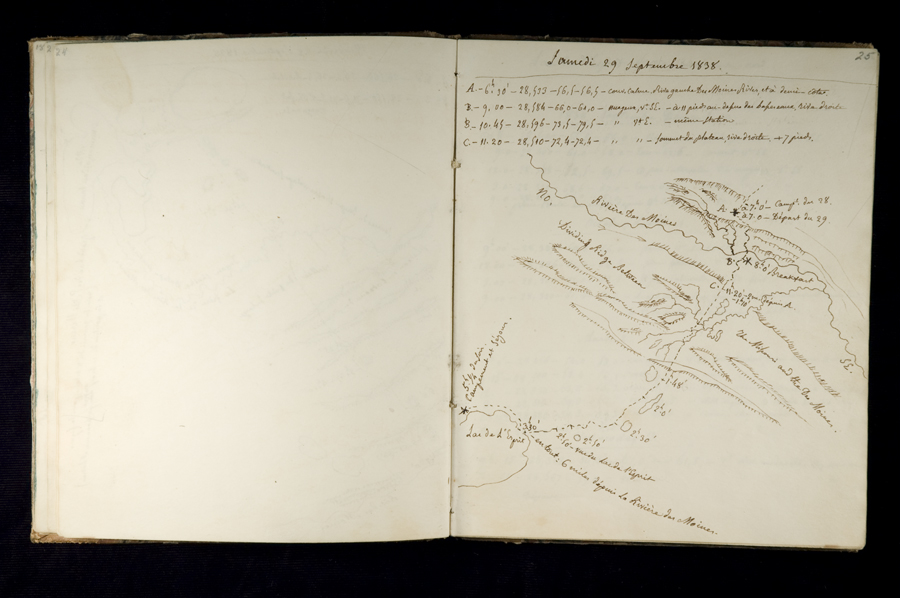 25
Samedi 29 Septembre 1838.
A. - 6h 30' - 28,533 - 56,5 - 56,5 - couv. Calme. Rive gauche Des Moines River, et à demi-côte.
B. - 9.00 - 28,584 - 66,0 - 61,0 - nuageux, V. SE. - à 11 pieds au dessus des basses eaux, rive droite
B. - 10.45 - 28,596 - 73,5 - 79,5 - " V. SE. - même station
C. - 11.20 - 28,510 - 72,4 - 72,4 - " " - Sommet du plateau, rive droite, + 7 pieds.
NO.
Rivière Des Moines
A.
à 7h 0' - Campt. du 28.
à 7.0 - Départ du 29
B.
8h 0' Breakfast
Dividing Ridge Between
C.
11.20
The Missouri and the Des Moines.
SE.
1h 48'
2h 0'
2h 30'
5h 1/2 du soir.
Campement et Séjour.
Lac de L'Esprit
2h 50' - vue du Lac de l'Esprit
en tout: 6 miles depuis la Rivière des Moines.